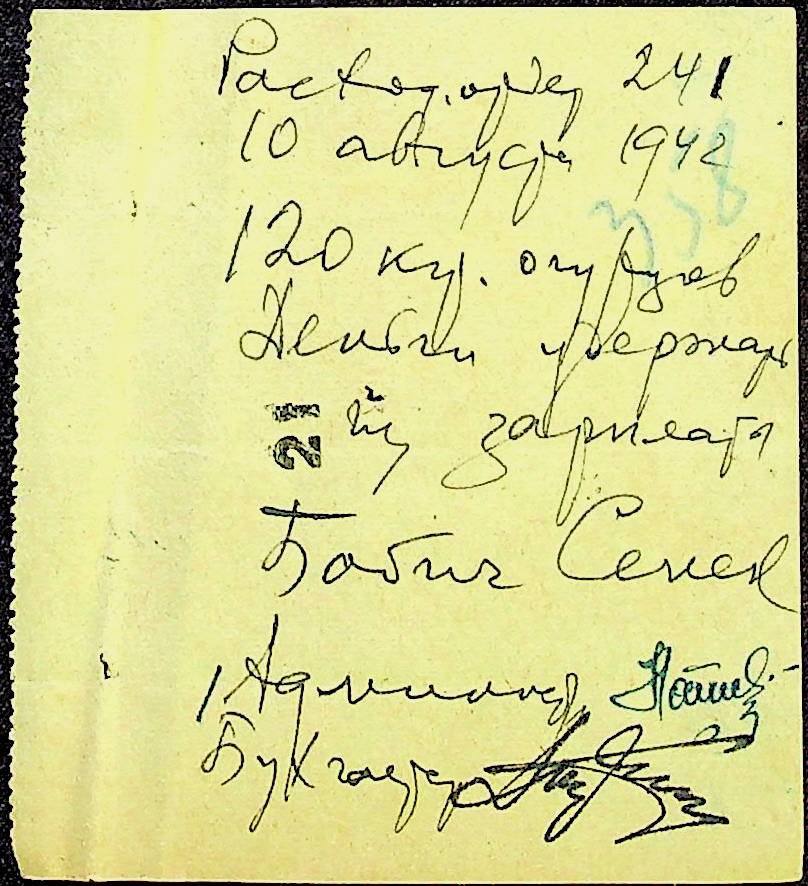 Расход. ордер 241
10 августа 1942
338
120 кг. огурцов
Деньги удержать
из зарплаты
21
Бабич Семен
Администр
Бухгалтер